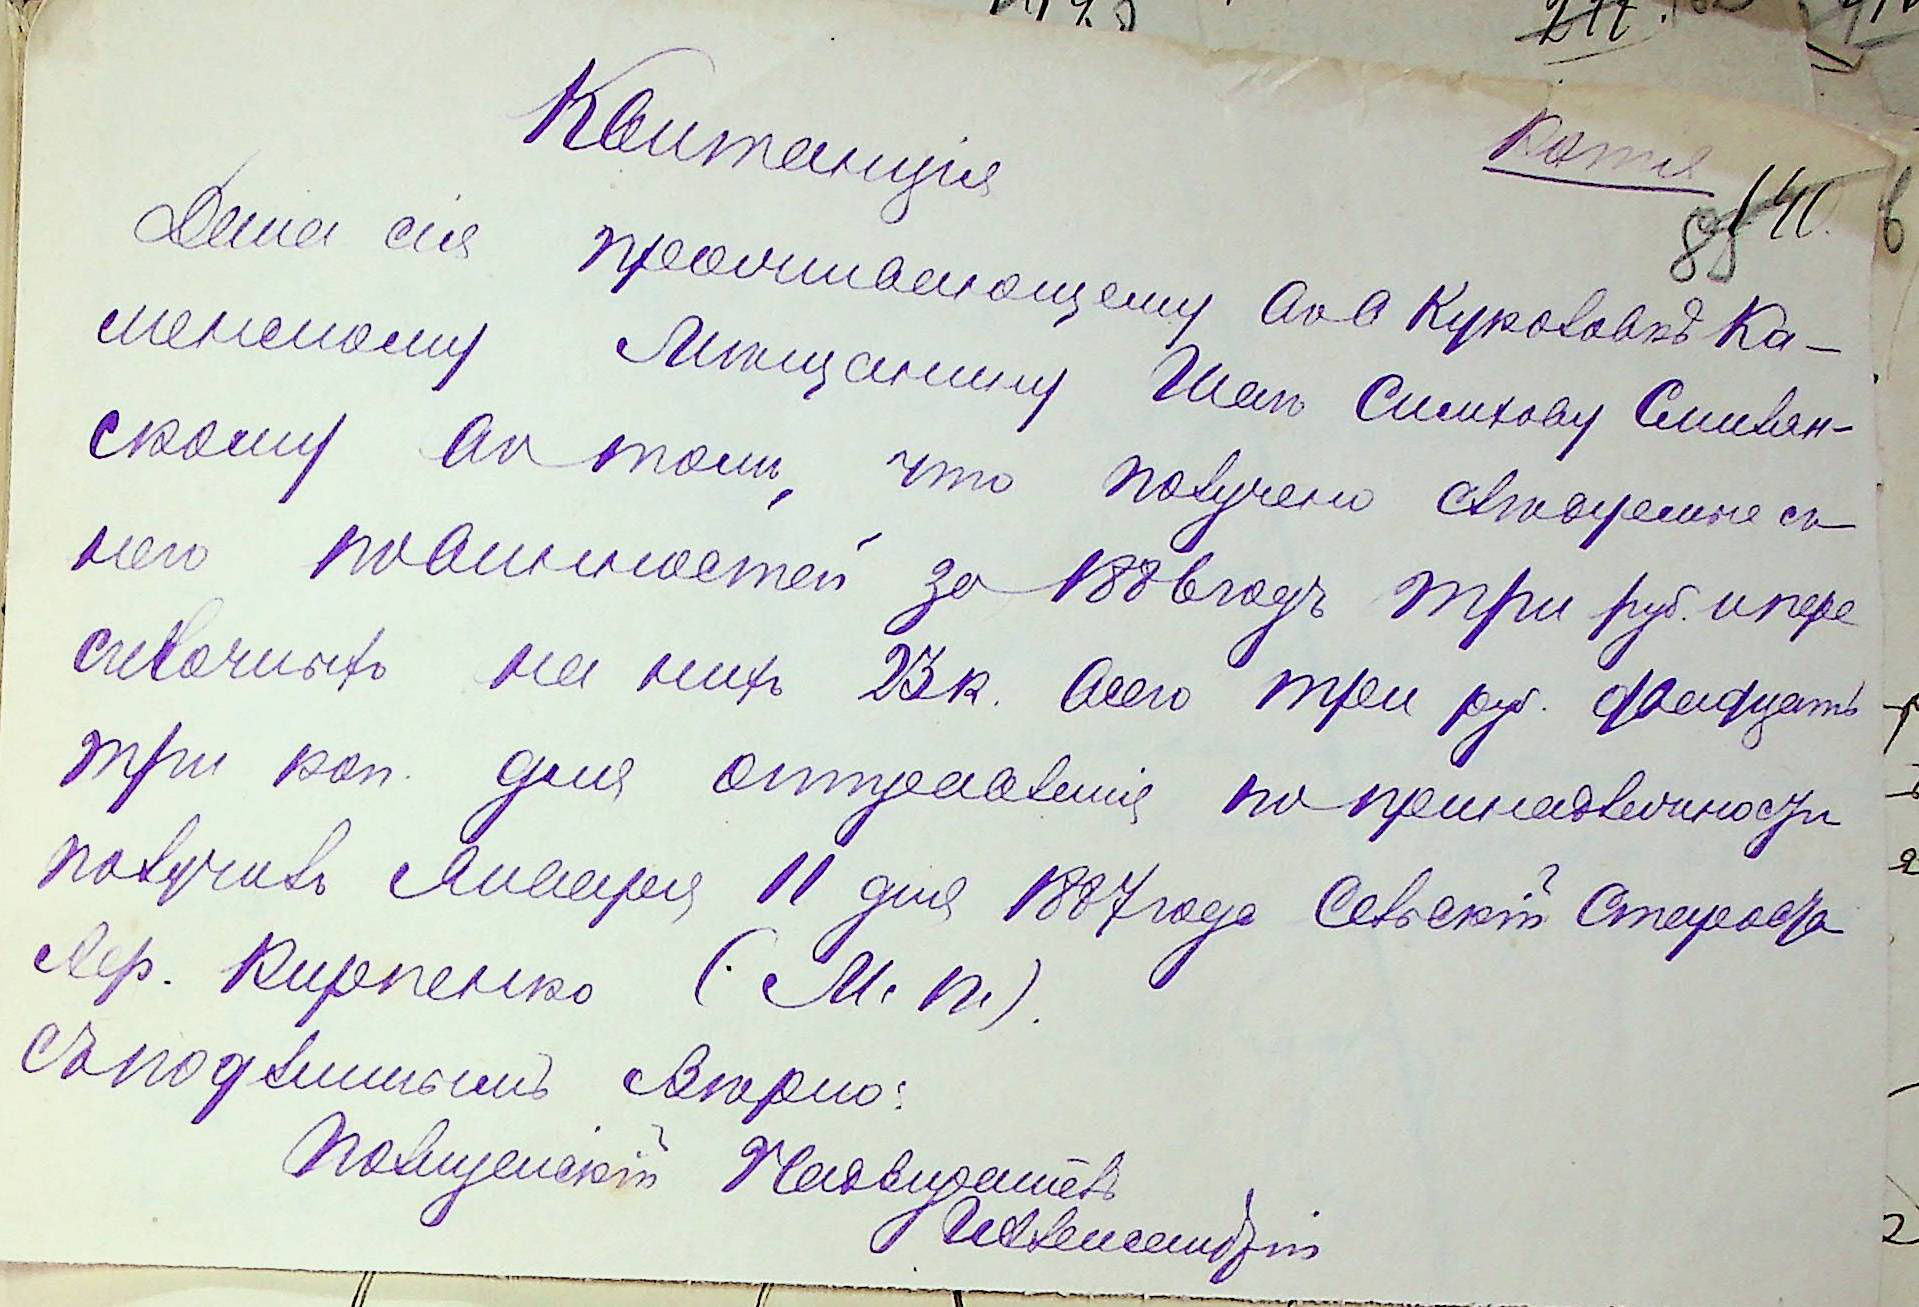 Копія
Квитанція
85 140.
Дана сія проживающему въ с Куколовкѣ Ка-
менскому Мѣщанину Ицкѣ Симхову Смилян-
скому въ томъ, что получено слѣдуемые съ
него повинностей за 1886 годъ три руб. и пере
сылочныхъ на нихъ 23 к. всего три руб. двадцать
три коп. для отправленія по принадлежности
получилъ Января 11 дня 1887 года Сельскій Староста
Яер. Кирпенко (М. п.).
Съ подлиннымъ вѣрно:
Полицейскій Надзиратель